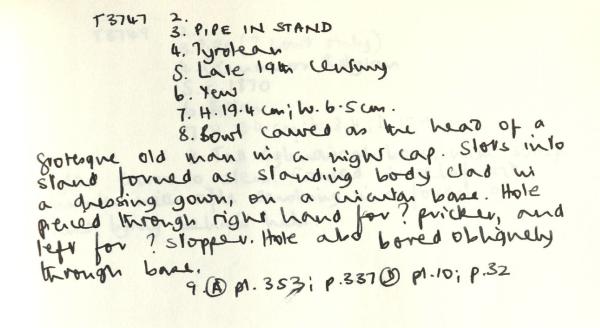 T3747 2.
3. PIPE IN STAND
4. Tyrolean
5. Late 19th century
6. Yew
7. H. 19.4 cm; W. 6.5 cm.
8. Bowl carved as the head of a
grotesque old man in a night cap. Slots into
stand formed as standing body clad in
a dressing gown, on a circular base. Hole
pierced through right hand for ? pricker, and
left for ? stopper. Hole also bored obliquely
through base.
9. (A) pl. 353; p. 337 (B) pl. 10; p. 32